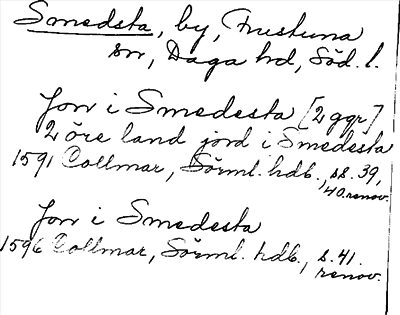 Smedsta, by, Frustuna
sn, Daga hd, Söd. l.
Jon i Smedesta [2 ggr]
2 öre land jord i Smedesta
1591 Collmar, Sörml. hdb., ss. 39,
40. renov.
Jon i Smedesta
1596 Collmar, Sörml. hdb., s. 41.
renov.